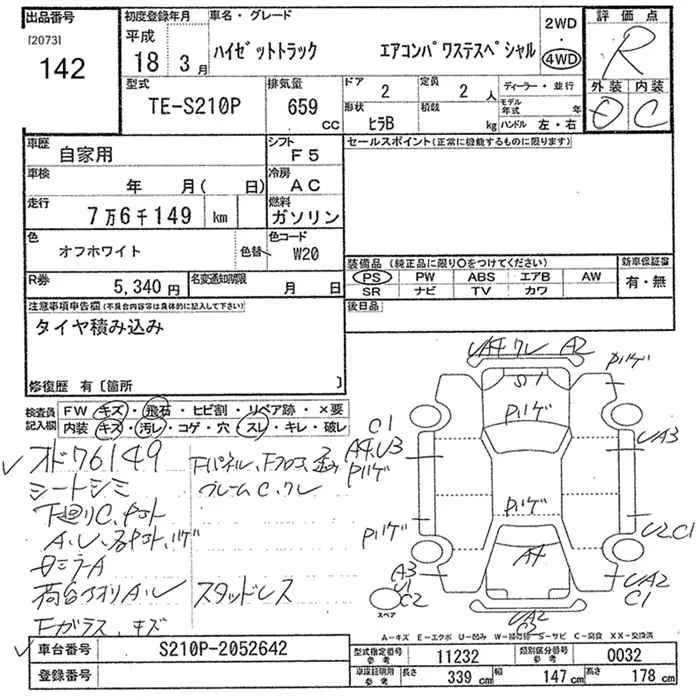 出品番号
[2073]
142
初度登録年月
平成
18 3 月
車名・グレード
ハイゼットトラック エアコンパワステスペシャル
2WD
・
4WD
評価点
R
外装 内装
C
型式
TE-S210P
排気量
659
CC
ドア
2
定員
2 人
形状
ヒラB
積載
kg
ディーラー・並行
モデル年式 年
ハンドル 左・右
車歴
自家用
シフト
F5
車検
年 月( 日)
冷房
AC
走行
7万6千149 km
燃料
ガソリン
色
オフホワイト
色替
色コード
W20
R券
5,340 円
名変通知期限
月 日
セールスポイント(正常に機能するものに限ります)
装備品(純正品に限り○をつけてください)
新車保証書
PS PW ABS エアB AW
有・無
SR ナビ TV カワ
後日品
注意事項申告欄(不具合内容等は具体的に記入して下さい)
タイヤ積み込み
修復歴 有〔箇所 〕
検査員記入欄
FW キズ・飛石・ヒビ割・リペア跡・×要
内装 キズ・汚レ・コゲ・穴・スレ・キレ・破レ
オド76149
シートシミ
下廻りC、
スタッドレス
Fガラス、キズ
UA4 クレ A2
S1
Pハゲ
Pハゲ
C1
A4.U3
Pハゲ
UA3
Pハゲ
Pハゲ
U2.C1
A4
A3
U1
C2
UA2
C1
UA2
スペア
A-キズ E-エクボ U-凹み W-補修跡 S-サビ C-腐食 XX-交換済
車台番号
S210P-2052642
登録番号
型式指定番号
参考
11232
類別区分番号
参考
0032
車庫証明用
参考
長さ
339 cm
幅
147 cm
高さ
178 cm